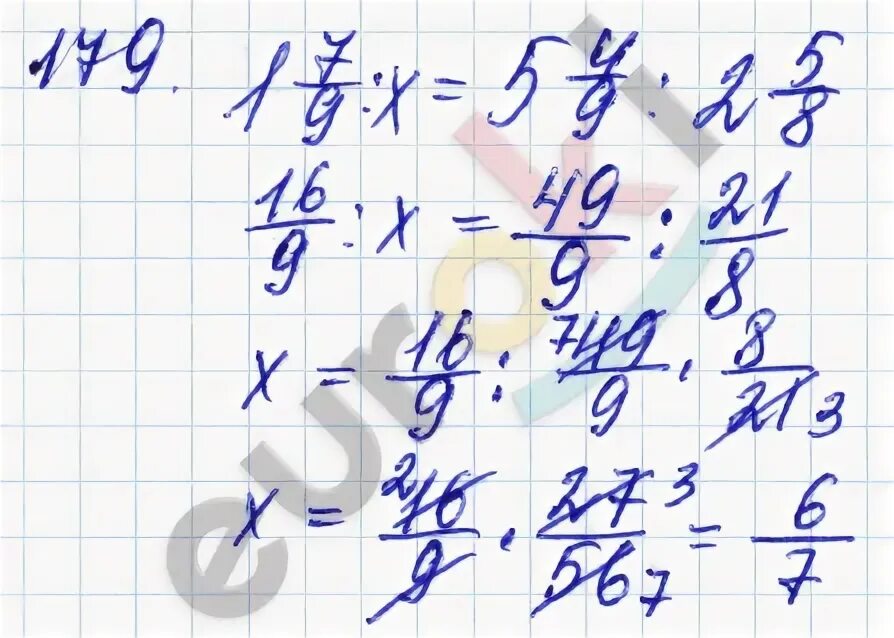 179. 1 7/9 : x = 5 4/9 : 2 5/8
16/9 : x = 49/9 : 21/8
x = 16/9 : 7 49/9 · 8/21 3
x = 2 16/9 · 27 3/56 7 = 6/7
euroki